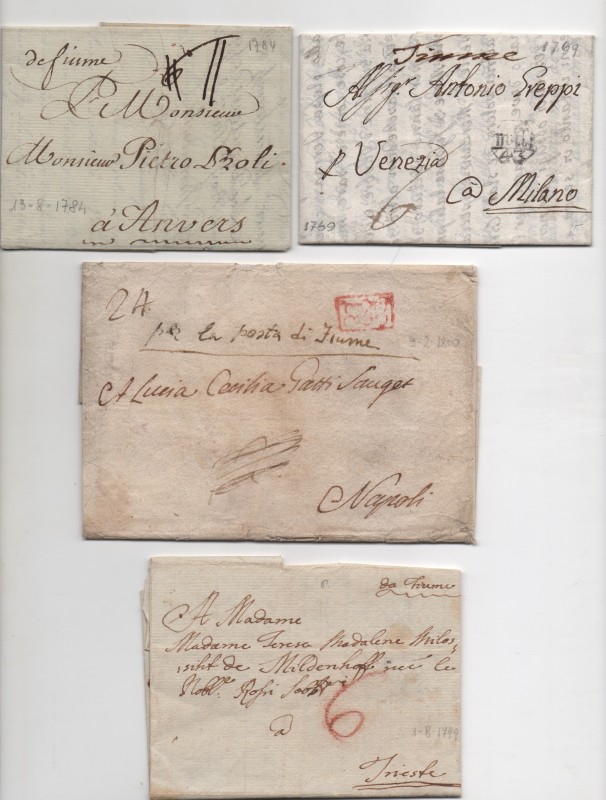 de fiume
1784
Pr. Monsieur
Monsieur Pietro
13-8-1784
à Anvers
Fiume
1769
All Sigr Antonio Greppi
p Venezia
a Milano
6
1769
24
per la posta di Fiume
A Lucia Cecilia Gatti Sauget
Napoli
da Fiume
A Madame
Madame Teresa Madalene Milos-
de Mildenhoff neé le
Nobl.e Rossi
6
à
1-8-1799
Trieste